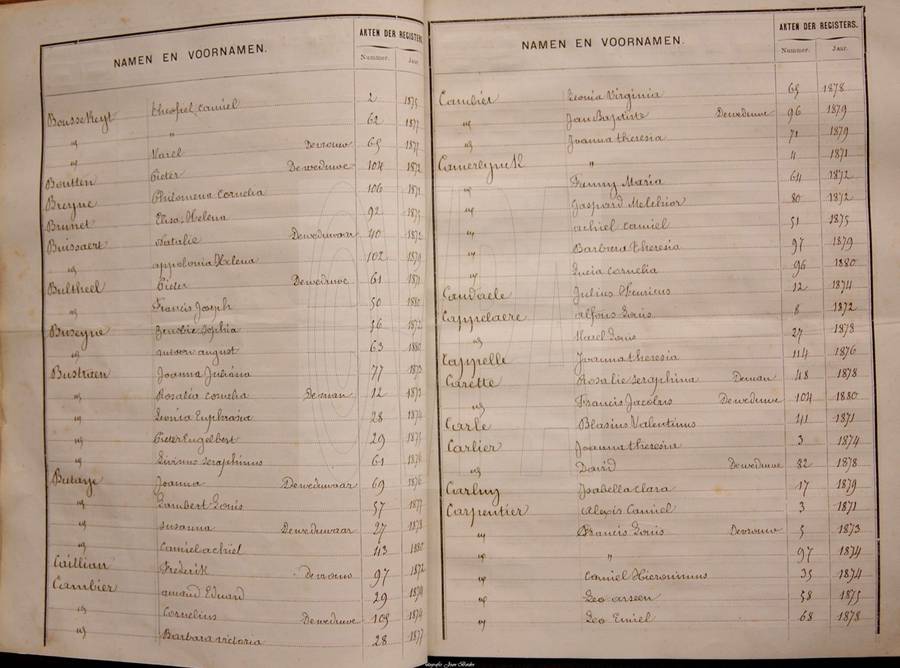 NAMEN EN VOORNAMEN. AKTEN DER REGISTERS
Nummer. Jaar.
Theophiel Camiel 2 1875
Bousse Keyt " 62 1877
" Karel De vrouw 65 1877
Boutten Pieter De weduwe 104 1872
Breyne Philomena Cornelia 106 1872
Brunet Elisa Helena 92 1875
Buissaert Natalie De weduwaar 40 1872
" Appolonia Helena 102 1879
Bultheel Pieter De weduwe 61 1871
" Francis Joseph 50 1880
Buseyne Zenobie Sophia 36 1872
" august 63 1880
Bustraen Joanna Juliana 77 1873
" Rosalia Cornelia De man 12 1873
" Leonia Euphrasia 28 1874
" Pieter Engelbert 29 1875
" Livinus Seraphinus 61 1876
Butaye Joanna De weduwaar 69 1876
" Lambert Louis 57 1877
" Susanna De weduwaar 27 1878
" Camiel achiel 113 1880
Caillian Frederik De vrouw 97 1872
Cambier amand Eduard 29 1874
" Cornelius De weduwe 105 1874
" Barbara Victoria 28 1877
NAMEN EN VOORNAMEN. AKTEN DER REGISTERS.
Nummer. Jaar.
Cambier Leonia Virginia 65 1878
" Jan Baptiste De weduwe 96 1879
" Joanna Theresia 71 1879
Camerlynck " 4 1871
" Fanny Maria 64 1872
" Jaspard Melchior 80 1872
" achiel Camiel 51 1875
" Barbara Theresia 97 1879
" Lucia Cornelia 96 1880
Candaele Julius Henricus 12 1874
Cappelaere alfons Louis 8 1872
" Karel Louis 27 1878
Cappelle Joanna Theresia 114 1876
Carette Rosalie Seraphina De man 48 1878
" Francis Jacobus De weduwe 104 1880
Carle Blasius Valentinus 41 1871
Carlier Joanna Theresia 3 1874
" David De weduwe 82 1878
Carluy Isabella Clara 17 1879
Carpentier Alexis Camiel 3 1871
" Francis Louis De vrouw 5 1873
" " 97 1874
" Camiel Hieronimus 35 1874
" Leo arseen 58 1875
" Leo Emiel 68 1878